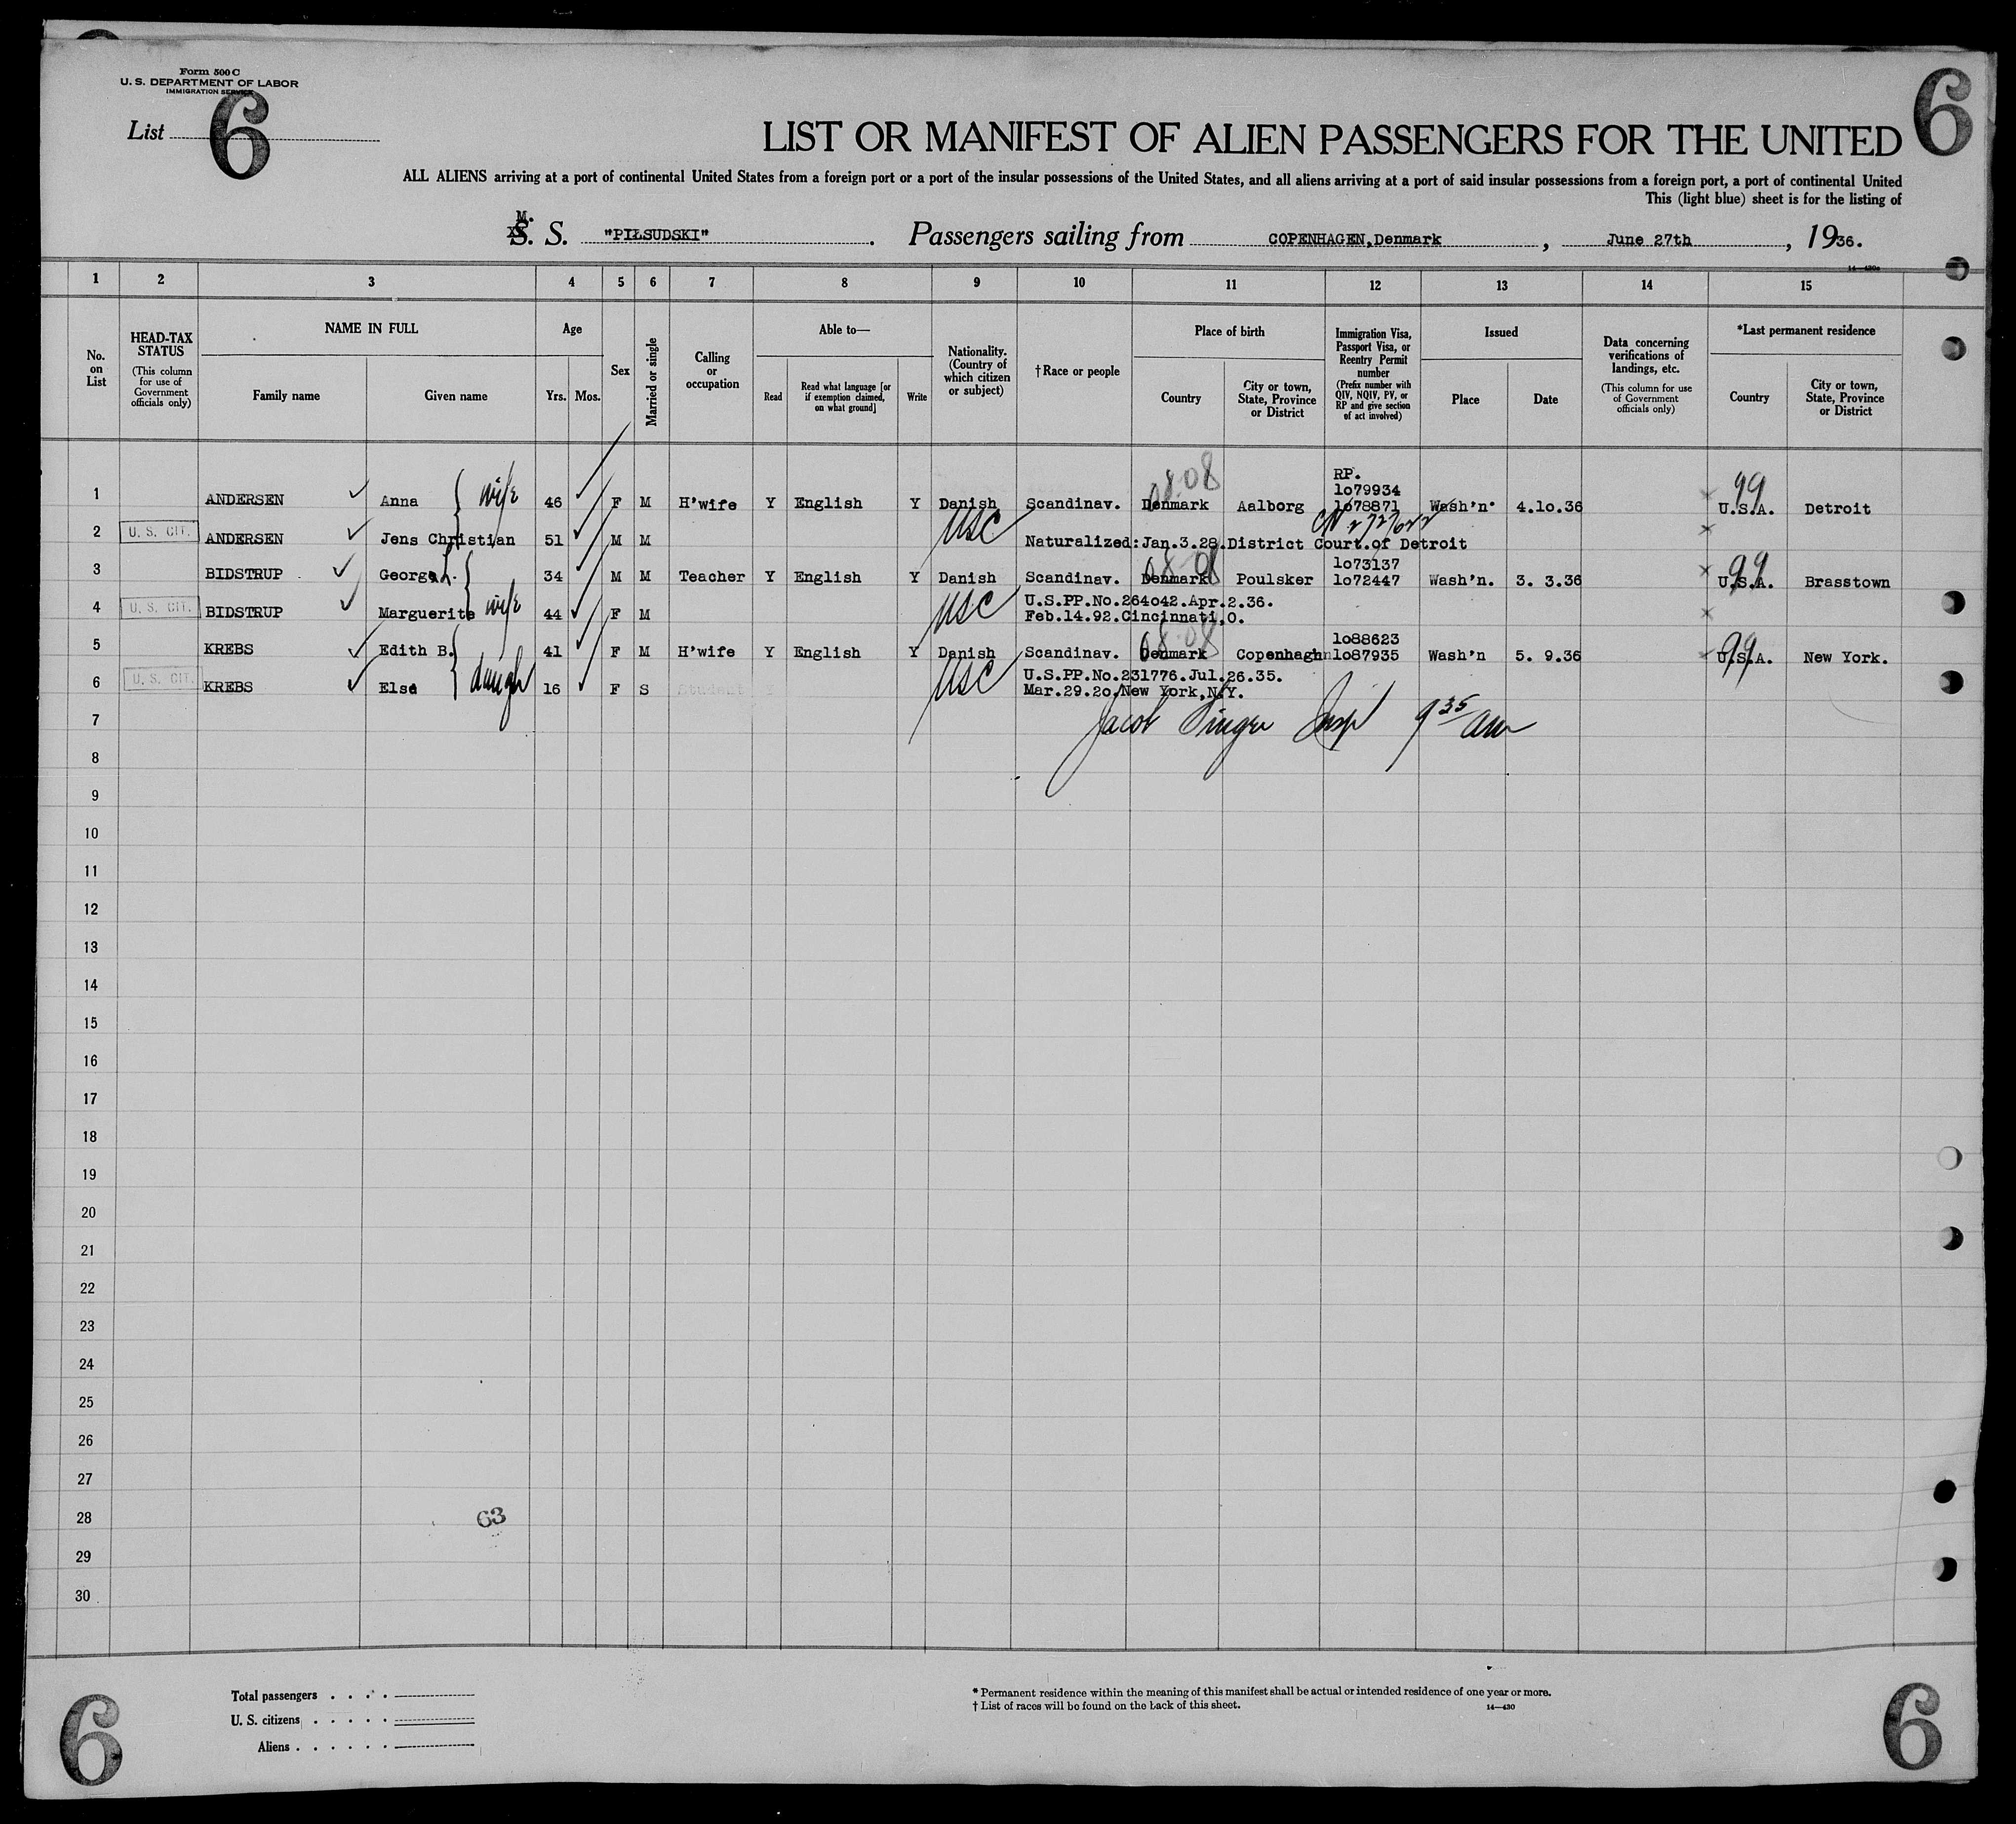 Form 500 C
U. S. DEPARTMENT OF LABOR
IMMIGRATION SERVICE
List 6
6
LIST OR MANIFEST OF ALIEN PASSENGERS FOR THE UNITED
ALL ALIENS arriving at a port of continental United States from a foreign port or a port of the insular possessions of the United States, and all aliens arriving at a port of said insular possessions from a foreign port, a port of continental United
This (light blue) sheet is for the listing of
M. S. "PIŁSUDSKI". Passengers sailing from COPENHAGEN,Denmark, June 27th, 1936.
14—430a
1 2 3 4 5 6 7 8 9 10 11 12 13 14 15
No. on List
HEAD-TAX STATUS (This column for use of Government officials only)
NAME IN FULL
Family name
Given name
Age
Yrs. Mos.
Sex
Married or single
Calling or occupation
Able to—
Read
Read what language [or if exemption claimed, on what ground]
Write
Nationality. (Country of which citizen or subject)
†Race or people
Place of birth
Country
City or town, State, Province or District
Immigration Visa, Passport Visa, or Reentry Permit number (Prefix number with QIV, NQIV, PV, or RP and give section of act involved)
Issued
Place
Date
Data concerning verifications of landings, etc. (This column for use of Government officials only)
*Last permanent residence
Country
City or town, State, Province or District
1 ANDERSEN Anna wife 46 F M H'wife Y English Y Danish Scandinav. Denmark 08-08 Aalborg RP. 1o79934 1o78871 Wash'n' 4.1o.36 99 U.S.A. Detroit
2 U. S. CIT. ANDERSEN Jens Christian 51 M M USC Naturalized:Jan.3.28.District Court.of Detroit
3 BIDSTRUP George L. 34 M M Teacher Y English Y Danish Scandinav. Denmark 08-08 Poulsker 1o73137 1o72447 Wash'n. 3. 3.36 99 U.S.A. Brasstown
4 U. S. CIT. BIDSTRUP Marguerite wife 44 F M USC U.S.PP.No.264o42.Apr.2.36.
Feb.14.92.Cincinnati,O.
5 KREBS Edith B. 41 F M H'wife Y English Y Danish Scandinav. Denmark 08-08 Copenhaghn 1o88623 1o87935 Wash'n 5. 9.36 99 U.S.A. New York.
6 U. S. CIT. KREBS Else daugh 16 F S Student USC U.S.PP.No.231776.Jul.26.35.
Mar.29.2o.New York,N.Y.
7 Jacob Singer Insp 9 35 am
8
9
10
11
12
13
14
15
16
17
18
19
20
21
22
23
24
25
26
27
28 63
29
30
Total passengers
U. S. citizens
Aliens
* Permanent residence within the meaning of this manifest shall be actual or intended residence of one year or more.
† List of races will be found on the back of this sheet.
14—430
6
6